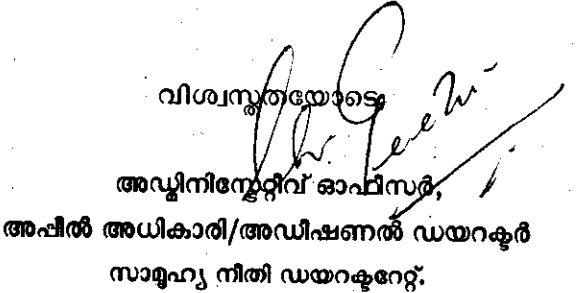 വിശ്വസ്തതയോടെ
അഡ്മിനിസ്ട്രേറ്റീവ് ഓഫീസർ,
അപ്പീൽ അധികാരി/അഡീഷണൽ ഡയറക്ടർ
സാമൂഹ്യ നീതി ഡയറക്ടറേറ്റ്.